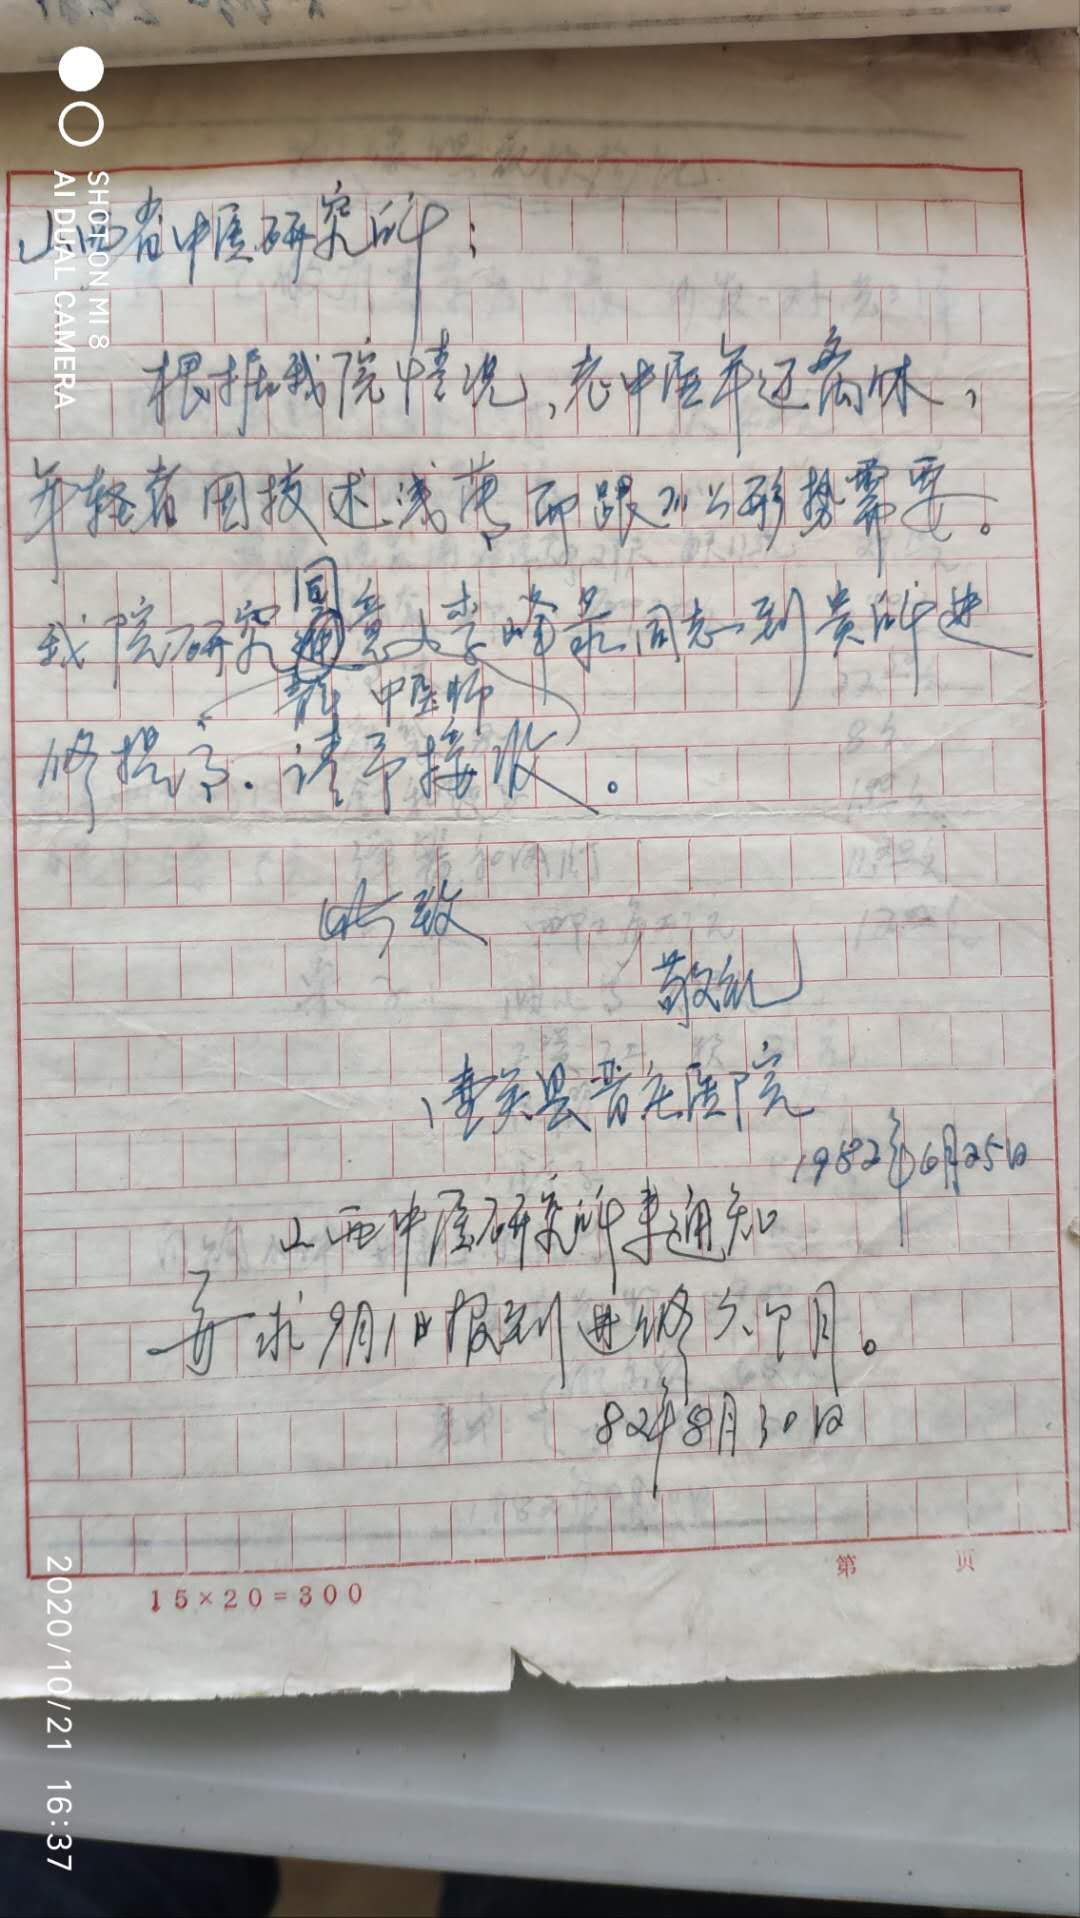 山西省中医研究所：
根据我院情况，老中医年迈离休，
年轻者因技述浅薄，而跟不上形势需要。
我院研究同意 李峰景同志到贵所进
中医师
修提高．请予接收。
此致
敬礼
壶关县晋庄医院
1982年6月25日
山西中医研究所来通知
要求9月1日报到进修六个月。
82年8月30日
15×20=300
第 页
SHOT ON MI 8
AI DUAL CAMERA
2020/10/21 16:37